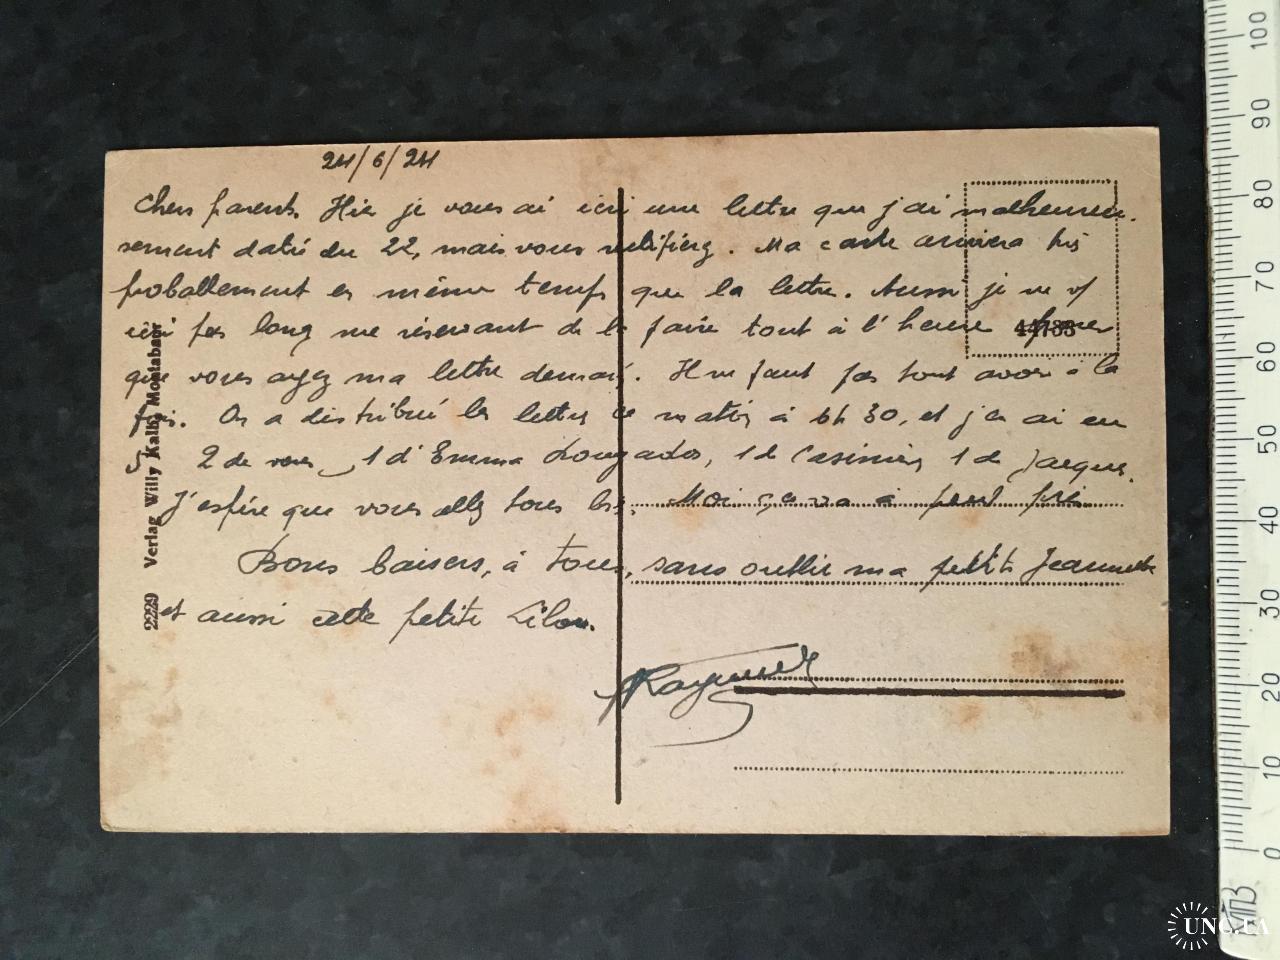 24/6/24
Chers parents. Hier je vous ai écri une lettre que j'ai malheureu-
sement daté du 22, mais vous rectifiérez. Ma carte arrivera très
proballement en même temps que la lettre. Aussi je ne v/
écri pas long me réservant de le faire tout à l'heure pour
que vous ayez ma lettre demain. Il ne faut pas tout avoir à la
fois. On a distribué les lettres ce matin à 6h30, et j'en ai eu
2 de vous, 1 d'Emma 1 de Casimir, 1 de Jacques.
J'espère que vous allez tous bien. Moi ça va à peut près.
Bons baisers, à tous, sans oublier ma petite Jeannette
et aussi cette petite Lilou.
Raymond
44733
2229 Verlag Willy Kalb, Montabaur
0 10 20 30 40 50 60 70 80 90 100
UNC.UA